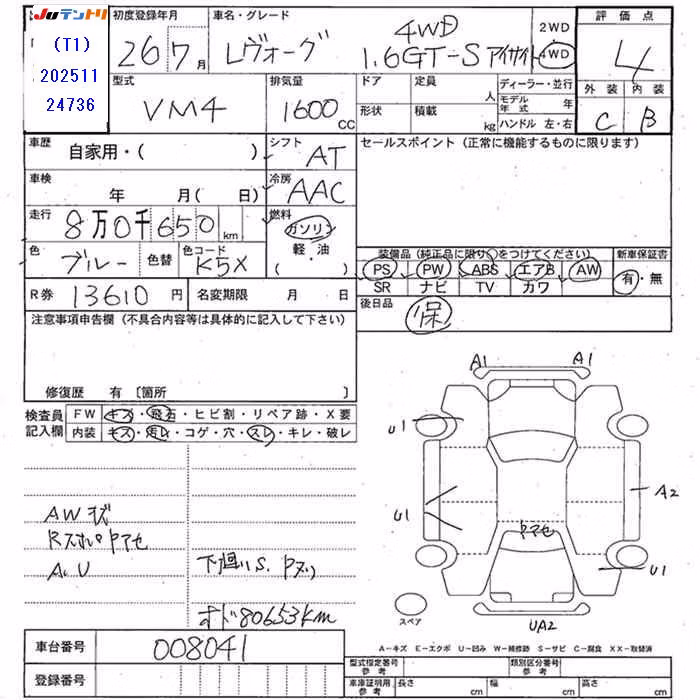 JUテントリ
(T1)
202511
24736
初度登録年月
26 7 月
車名・グレード
レヴォーグ 4WD 1.6GT-S アイサイト
2WD
4WD
評価点
4
外装 内装
C B
型式
VM4
排気量
1600 cc
ドア
定員
人
形状
積載
kg
ディーラー・並行
モデル年式 年
ハンドル 左・右
車歴
自家用・( )
シフト
AT
セールスポイント (正常に機能するものに限ります)
車検
年 月( 日)
冷房
AAC
走行
8万0千650 km
燃料
ガソリン
軽・油
( )
色
ブルー
色替
色コード
K5X
装備品(純正品に限り○をつけてください)
新車保証書
PS PW ABS エアB AW
SR ナビ TV カワ
有・無
R券 13610 円
名変期限 月 日
後日品
保
注意事項申告欄 (不具合内容等は具体的に記入して下さい)
修復歴 有 〔箇所 〕
検査員記入欄
FW キズ・飛石・ヒビ割・リペア跡・X要
内装 キズ・汚レ・コゲ・穴・スレ・キレ・破レ
AWキズ
Rスポ Pアセ
A.U
下廻りS. Pヌリ
オド80653km
A1
A1
U1
U1
A2
Pアセ
U1
UA2
スペア
A-キズ E-エクボ U-凹み W-補修跡 S-サビ C-腐食 XX-取替済
車台番号
008041
登録番号
型式指定番号
類別区分番号
車庫証明用
長さ cm
幅 cm
高さ cm